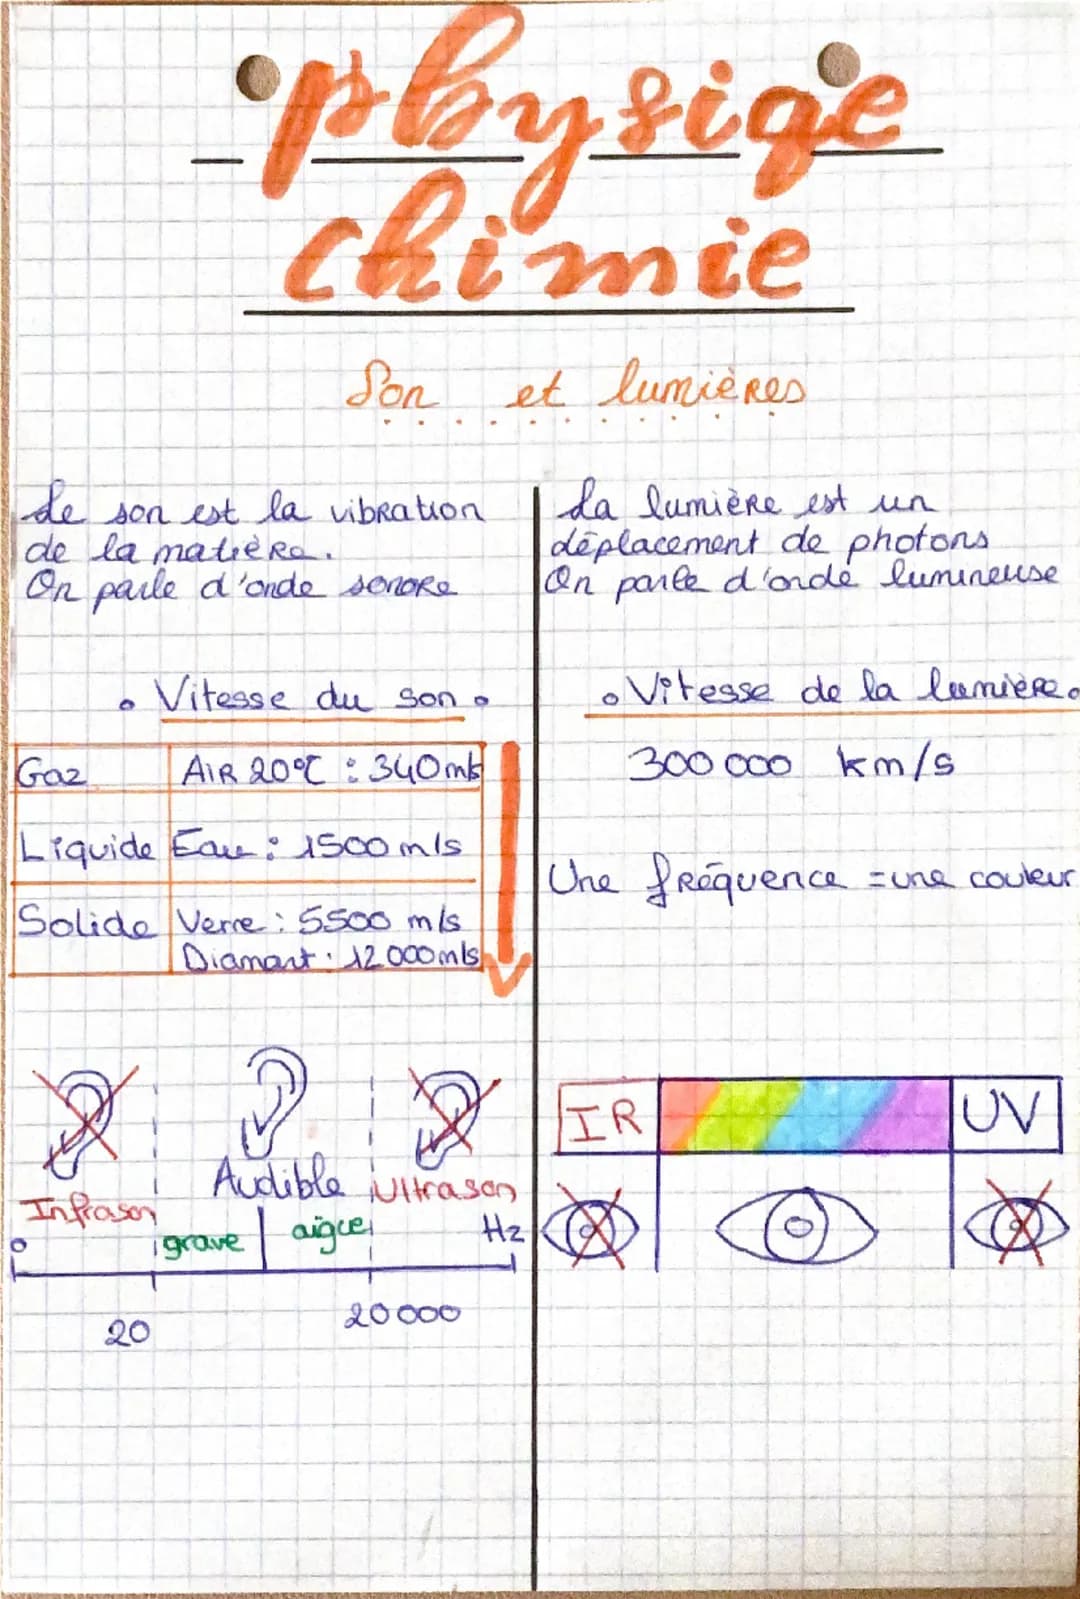 physiqe
chimie
Son et lumières
Le son est la vibration
de la matière.
On parle d'onde sonore
• Vitesse du son •
Gaz AIR 20°C : 340 m/s
Liquide Eau : 1500 m/s
Solide Verre : 5500 m/s
Diamant : 12 000 m/s
Infrason Audible Ultrason
0 grave aigue Hz
20 20 000
La lumière est un
déplacement de photons
On parle d'onde lumineuse
• Vitesse de la lumière •
300 000 km/s
Une fréquence = une couleur
IR UV